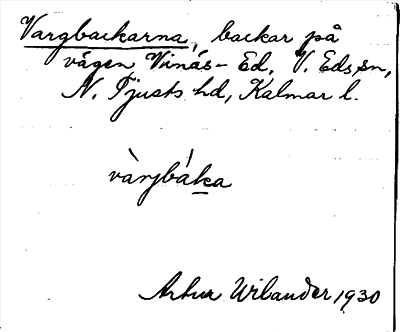 Vargbackarna, backar på
vägen Vinås – Ed, V. Eds sn,
N. Tjusts hd, Kalmar l.
vàrjbáka
Artur Wilander 1930